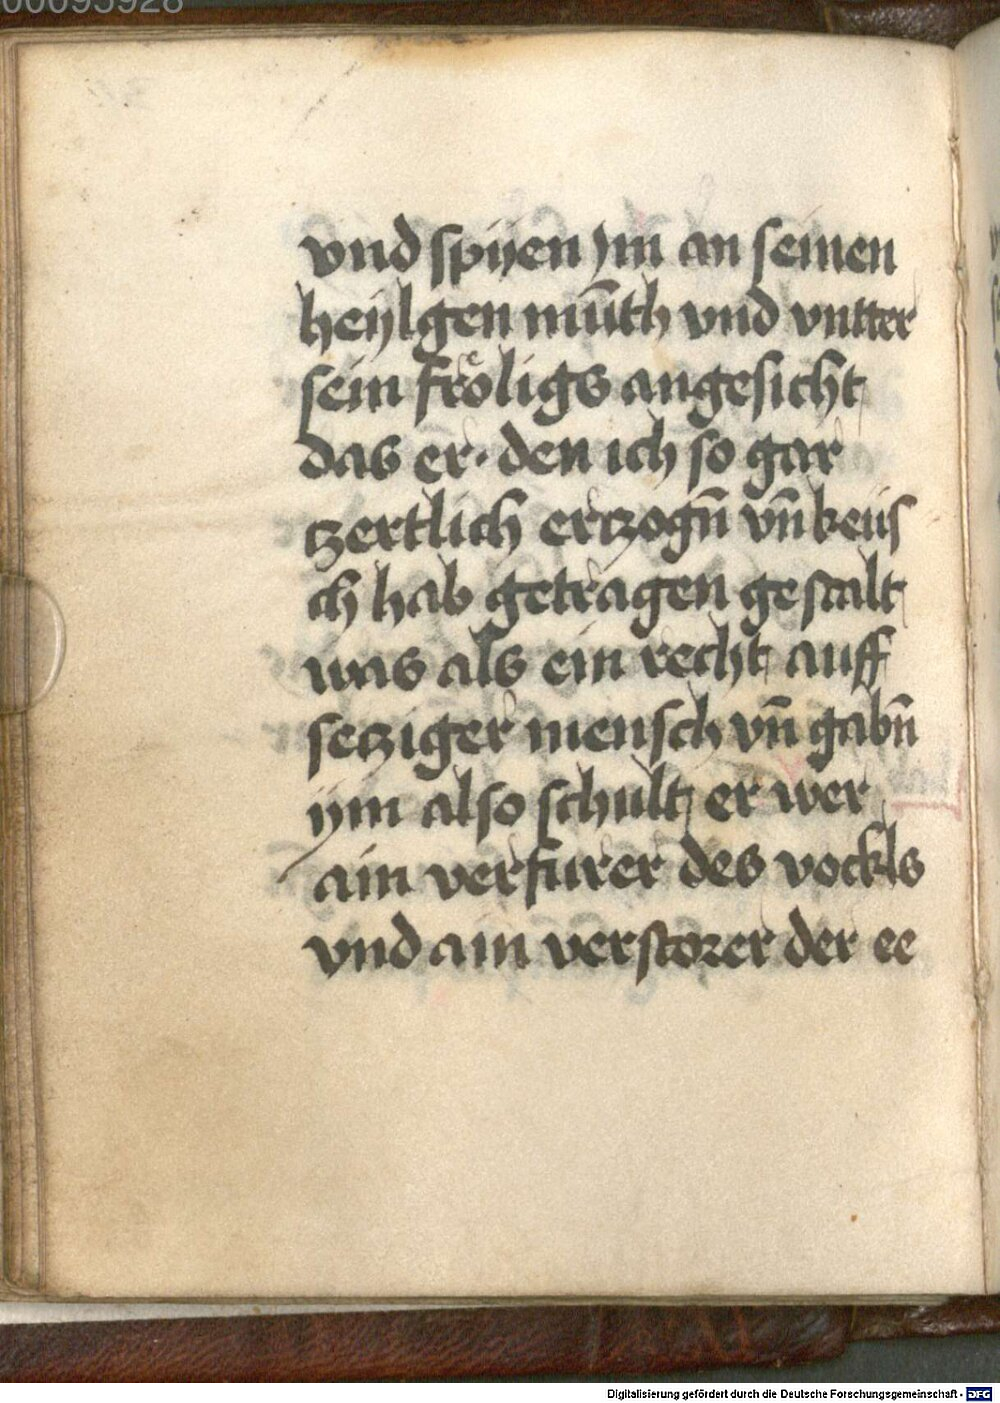 00095928
vnd spijen ym an seinen
heijlgen mūth vnd vntter
sein froͤligs angesicht
das er · den ich so gar
tzertlich ertzogn̄ vn̄ keüs
ch hab getragen gestalt
was als ein recht auff
setziger mensch vn̄ gabn̄
ijm also schult er wer
ain verfurer des vockls
vnd ain verstorer der ee
Digitalisierung gefördert durch die Deutsche Forschungsgemeinschaft - DFG